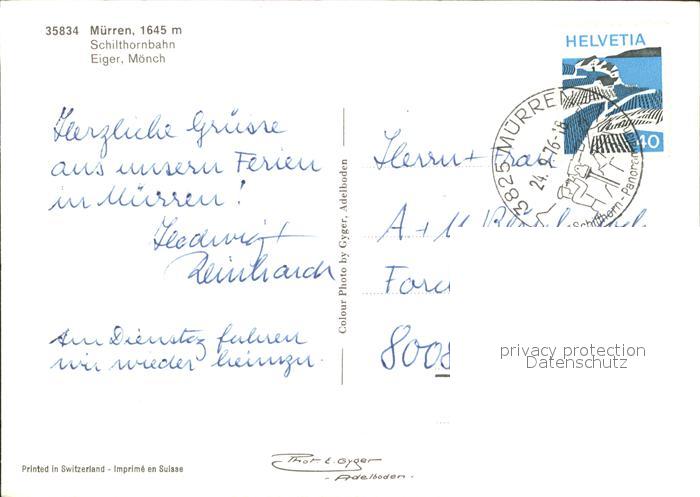 35834 Mürren, 1645 m
Schilthornbahn
Eiger, Mönch
HELVETIA
40
3825 MÜRREN
24.
76-18
Schilthorn-Panorama
Herzliche Grüsse
aus unsern Ferien
in Mürren!
Hedwig +
Reinhard
Am Dienstag fahren
wir wieder heimzu.
Colour Photo by Gyger, Adelboden
Herrn + Frau
A + M
8008
privacy protection
Datenschutz
Printed in Switzerland - Imprimé en Suisse
Phot. E. Gyger
- Adelboden -